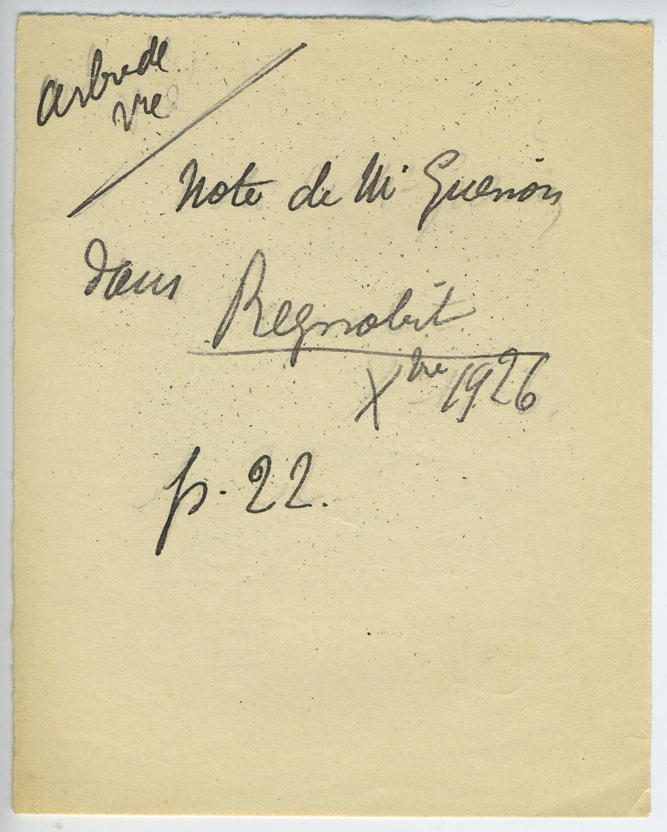 arbre de
vie
Note de Mr Guénon
dans
Regnabit
Xbre 1926
p. 22.